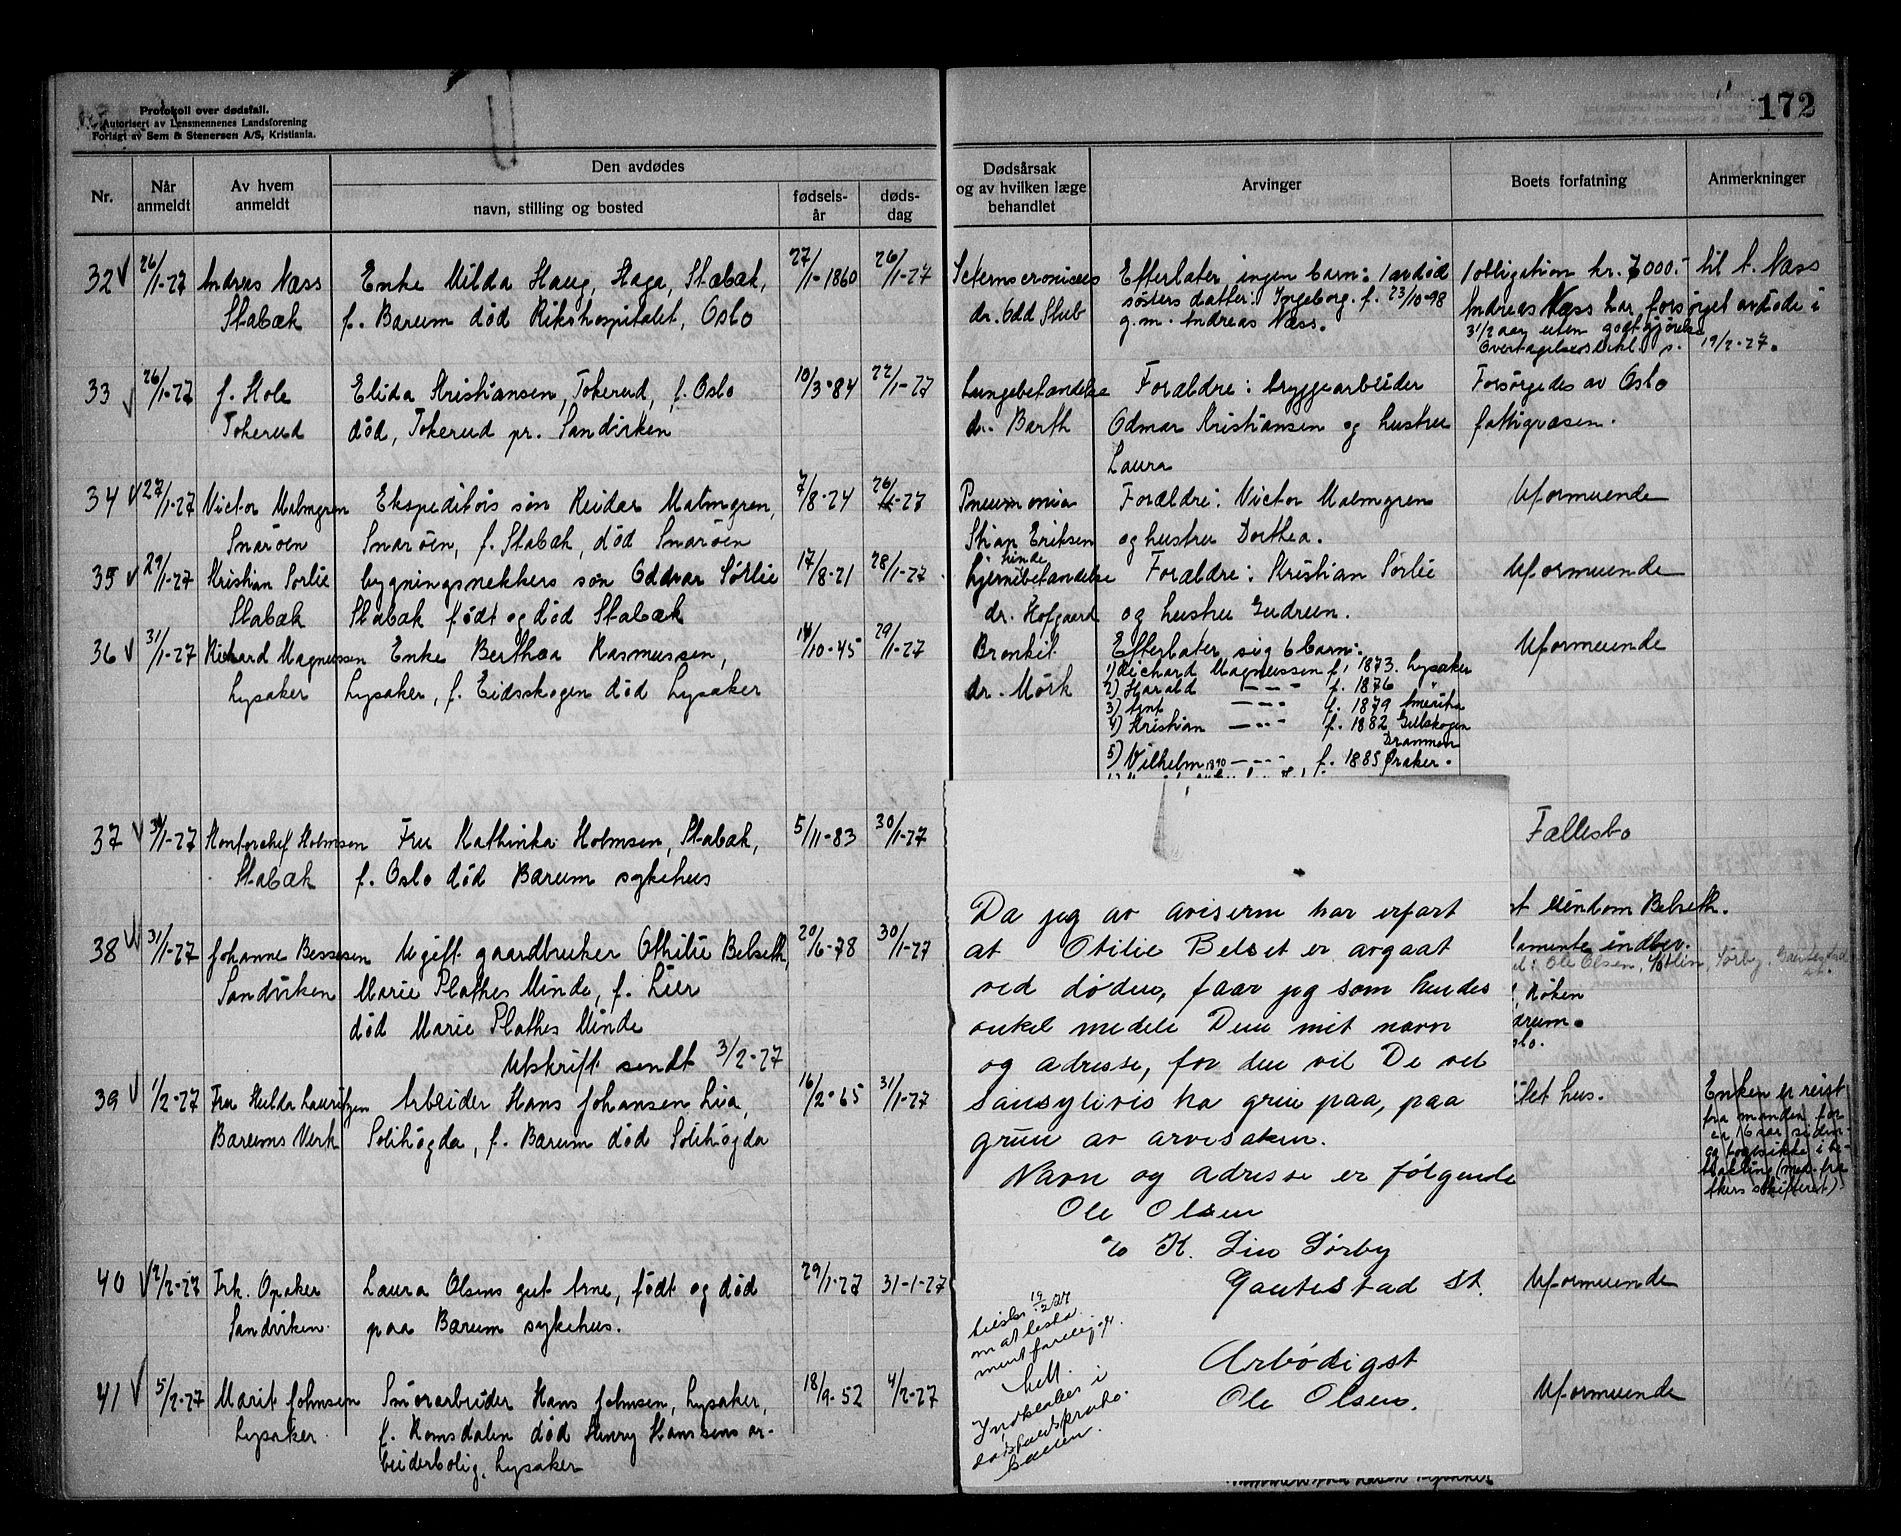 Protokoll over dødsfall.
Autorisert av Lensmennenes Landsforening
Forlagt av Sem & Stenersen A/S, Kristiania.
172
Nr.
Når anmeldt
Av hvem anmeldt
Den avdødes
navn, stilling og bosted
fødsels-år
døds-dag
Dødsårsak og av hvilken læge behandlet
Arvinger
Boets forfatning
Anmerkninger
32 26/1-27 Andreas Næss Enke Milda Haug, Haga, Stabæk, 27/1-1860 26/1-27
Stabæk f. Bærum død Rikshospitalet, Oslo
dr. Odd Stub
Efterlater ingen barn: 1 avdød
søsters datter: Ingeborg. f. 23/10-98
g.m. Andreas Næss.
1 obligation kr. 7000.- til A. Næss
Andreas Næss har forsørget avdøde i
3 1/2 aar uten godtgjørelse
Overtagelseserkl. s. 19/2-27.
33 26/1-27 f. Hole Elida Kristiansen, Tokerud, f. Oslo 10/3-84 22/1-27
Tokerud død, Tokerud pr. Sandviken
Lungebetændelse
dr. Barth
Forældre: bryggearbeider
Odmar Kristiansen og hustru
Laura
Forsørgedes av Oslo
fattigvæsen.
34 27/1-27 Victor Malmgren Ekspeditørs søn Reidar Malmgren, 7/8-24 26/1-27
Snarøen Snarøen, f. Stabæk, død Snarøen
Pneumonia
Stian Eriksen
Forældre: Victor Malmgren
og hustru Dorthea.
Uformuende
35 29/1-27 Kristian Sørlie bygningssnekkers søn Oddvar Sørlie 17/8-21 28/1-27
Stabæk Stabæk født og død Stabæk
hinde
hjernebetændelse
dr. Hofgaard
Forældre: Kristian Sørlie
og hustru Gudrun.
Uformuende
36 31/1-27 Richard Magnussen Enke Berthea Rasmussen, 14/10-45 29/1-27
Lysaker Lysaker, f. Eidsskogen død Lysaker
Bronkit.
dr. Mørk
Efterlater sig 6 barn:
1) Richard Magnussen f. 1873. Lysaker
2) Harald — — - f. 1876 "
3) Arnt — - - f. 1879 Amerika
4) Kristian — - - f. 1882 Gulskogen
Drammen
5) Vilhelm — - - f. 1885 Øraker.
Uformuende
37 31/1-27 Kontorchef Holmsen Fru Kathinka Holmsen, Stabæk, 5/11-83 30/1-27
Stabæk f. Oslo død Bærum sykehus
Fællesbo
38 31/1-27 Johanne Bessesen Ugift gaardbruker Othilie Belseth, 20/6-78 30/1-27
Sandviken Marie Plathes Minde, f. Lier
død Marie Plathes Minde
Utskrift sendt 3/2-27
st eiendom Belseth.
lamente indlev.
Ole Olsen,
Røken
ærum.
slo.
39 1/2-27 Fru Hulda Lauritzen Arbeider Hans Johansen Lia, 16/2-65 31/1-27
Bærums Verk Solihøgda, f. Bærum død Solihøgda
litet hus.
Enken er reist
fra manden for
ca 16 aar siden
40 2/2-27 Frk. Opaker Laura Olsens gut Arne, født og død 29/1-27 31-1-27
Sandviken. paa Bærum sykehus.
Uformuende
41 5/2-27 Marit Johnsen Snørarbeider Hans Johnsen, Lysaker, 18/9-52 4/2-27
Lysaker. f. Romsdalen død Henry Hanssens ar-
beiderbolig, Lysaker
Uformuende
Da jeg av aviserne har erfart
at Otilie Belset er avgaat
ved døden, faar jeg som hendes
onkel medele Dem mit navn
og adresse, for den vil De vel
sansylivis ha grun paa, paa
grun av arvesaken.
Navn og adresse er følgende
Ole Olsen
c/o K. Lin Sørby
Gautestad St.
Arbødigst
Ole Olsen.
19/2 27
om at testa
ment foreligger.
Indheftes i
dødsfaldsproto-
kollen.